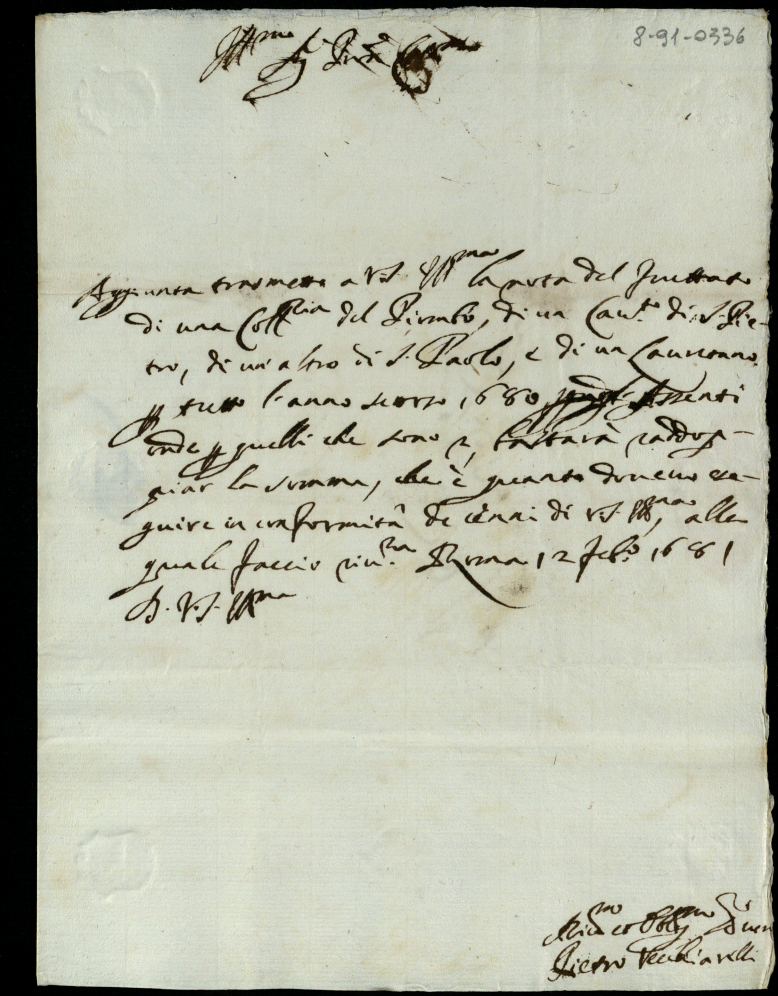 8-91-0336
Ill.mo Sig.r Pron
Aggiunta trasmetto a V.S. Ill.ma la nota del fruttato
di una Coll.ria del Piombo, di un Cav.to di S. Pie-
tro, di un altro di S. Paolo, e di un Lauretano
p tutto l'anno scorso 1680 Assenti
onde p quelli che sono 2, bastarà raddop-
piar la somma, che è quanto dovevo ese-
guire in conformità de cenni di V.S. Ill.ma, alla
quale faccio riv.za Roma 12 Feb.o 1681
D. V.S. Ill.ma
et Obblig.mo
Pietro Vecchiarelli